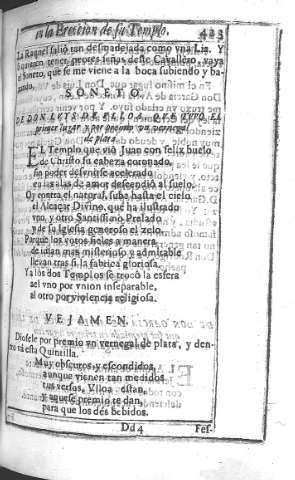 en la Ereccion de su Templo. 423
La Raquel salió tan desmadejada como vna Lia. Y
si quieren tener peores señas deste Cavallero, vaya
el Soneto, que se me viene a la boca subiendo y ba-
xando.
SONETO.
DE DON LUIS DE VLLOA, QUE TUVO EL
primer lugar, y por premio, vn vernegal
de plata.
EL Templo que viò Juan con feliz buelo
de Christo su cabeza coronado,
sin poder defenirse acelerado
en las alas de amor descendiò al suelo.
Oy contra el natural, suba hasta el cielo
el Alcaçar Divino, que ha ilustrado
vno, y otro Santissimo Prelado
y de su Iglesia generoso el zelo.
Porque los votos fieles a manera
de iman mas misterioso y admirable
llevan tras si la fabrica gloriosa
Ya los dos Templos se trocò la esfera
al vno por vnion inseparable,
al otro por violencia religiosa.
VEJAMEN.
Diosele por premio vn vernegal de plata, y den-
tro và esta Quintilla.
Muy obscuros, y escondidos,
aunque vienen tan medidos
tus versos, Vlloa estan,
y aqueste premio te dan,
para que los dès bebidos.
Dd4 Fes-